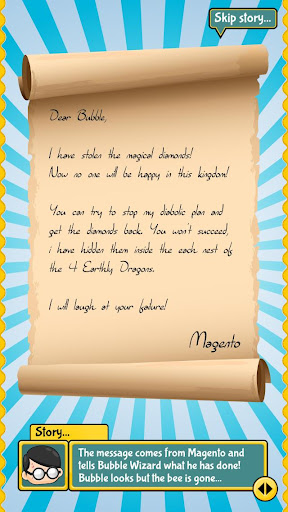 Skip story...
Dear Bubble,
I have stolen the magical diamonds!
Now no one will be happy in this kingdom!
You can try to stop my diabolic plan and
get the diamonds back. You won't succeed,
i have hidden them inside the each nest of
the 4 Earthly Dragons.
I will laugh at your failure!
Magento
Story...
The message comes from Magento and
tells Bubble Wizard what he has done!
Bubble looks but the bee is gone...